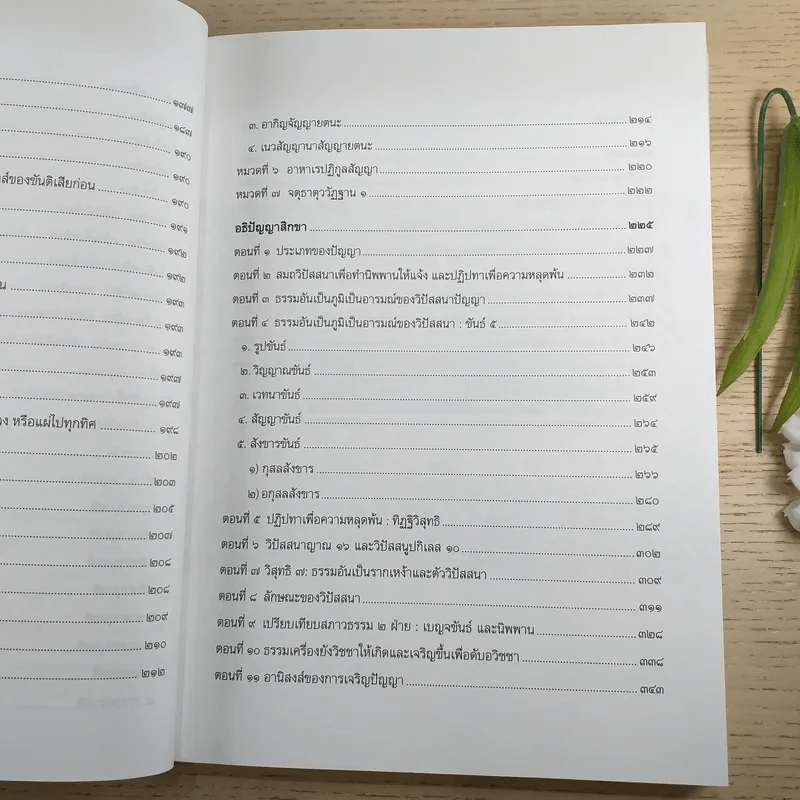 ๑๗๗
๑๘๗
๑๙๐
๑๙๐
ของขันติเสียก่อน ๑๙๐
๑๙๑
๑๙๒
๑๙๒
๑๙๓
๑๙๓
๑๙๓
๑๙๗
๑๙๗
หรือแผ่ไปทุกทิศ ๑๙๘
๒๐๒
๒๐๓
๒๐๕
๒๐๗
๒๐๘
๒๐๘
๒๐๙
๒๑๐
๒๑๒
๓. อากิญจัญญายตนะ ๒๑๔
๔. เนวสัญญานาสัญญายตนะ ๒๑๖
หมวดที่ ๖ อาหาเรปฏิกูลสัญญา ๒๒๐
หมวดที่ ๗ จตุธาตุววัฏฐาน ๑ ๒๒๒
อธิปัญญาสิกขา ๒๒๕
ตอนที่ ๑ ประเภทของปัญญา ๒๒๗
ตอนที่ ๒ สมถวิปัสสนาเพื่อทำนิพพานให้แจ้ง และปฏิปทาเพื่อความหลุดพ้น ๒๓๒
ตอนที่ ๓ ธรรมอันเป็นภูมิเป็นอารมณ์ของวิปัสสนาปัญญา ๒๓๗
ตอนที่ ๔ ธรรมอันเป็นภูมิเป็นอารมณ์ของวิปัสสนา : ขันธ์ ๕ ๒๔๒
๑. รูปขันธ์ ๒๔๖
๒. วิญญาณขันธ์ ๒๕๓
๓. เวทนาขันธ์ ๒๕๙
๔. สัญญาขันธ์ ๒๖๔
๕. สังขารขันธ์ ๒๖๕
๑) กุสลสังขาร ๒๖๖
๒) อกุสลสังขาร ๒๘๐
ตอนที่ ๕ ปฏิปทาเพื่อความหลุดพ้น : ทิฏฐิวิสุทธิ ๒๘๙
ตอนที่ ๖ วิปัสสนาญาณ ๑๖ และวิปัสสนูปกิเลส ๑๐ ๓๐๒
ตอนที่ ๗ วิสุทธิ ๗: ธรรมอันเป็นรากเหง้าและตัววิปัสสนา ๓๐๙
ตอนที่ ๘ ลักษณะของวิปัสสนา ๓๑๑
ตอนที่ ๙ เปรียบเทียบสภาวธรรม ๒ ฝ่าย : เบญจขันธ์ และนิพพาน ๓๒๘
ตอนที่ ๑๐ ธรรมเครื่องยังวิชชาให้เกิดและเจริญขึ้นเพื่อดับอวิชชา ๓๓๘
ตอนที่ ๑๑ อานิสงส์ของการเจริญปัญญา ๓๔๓